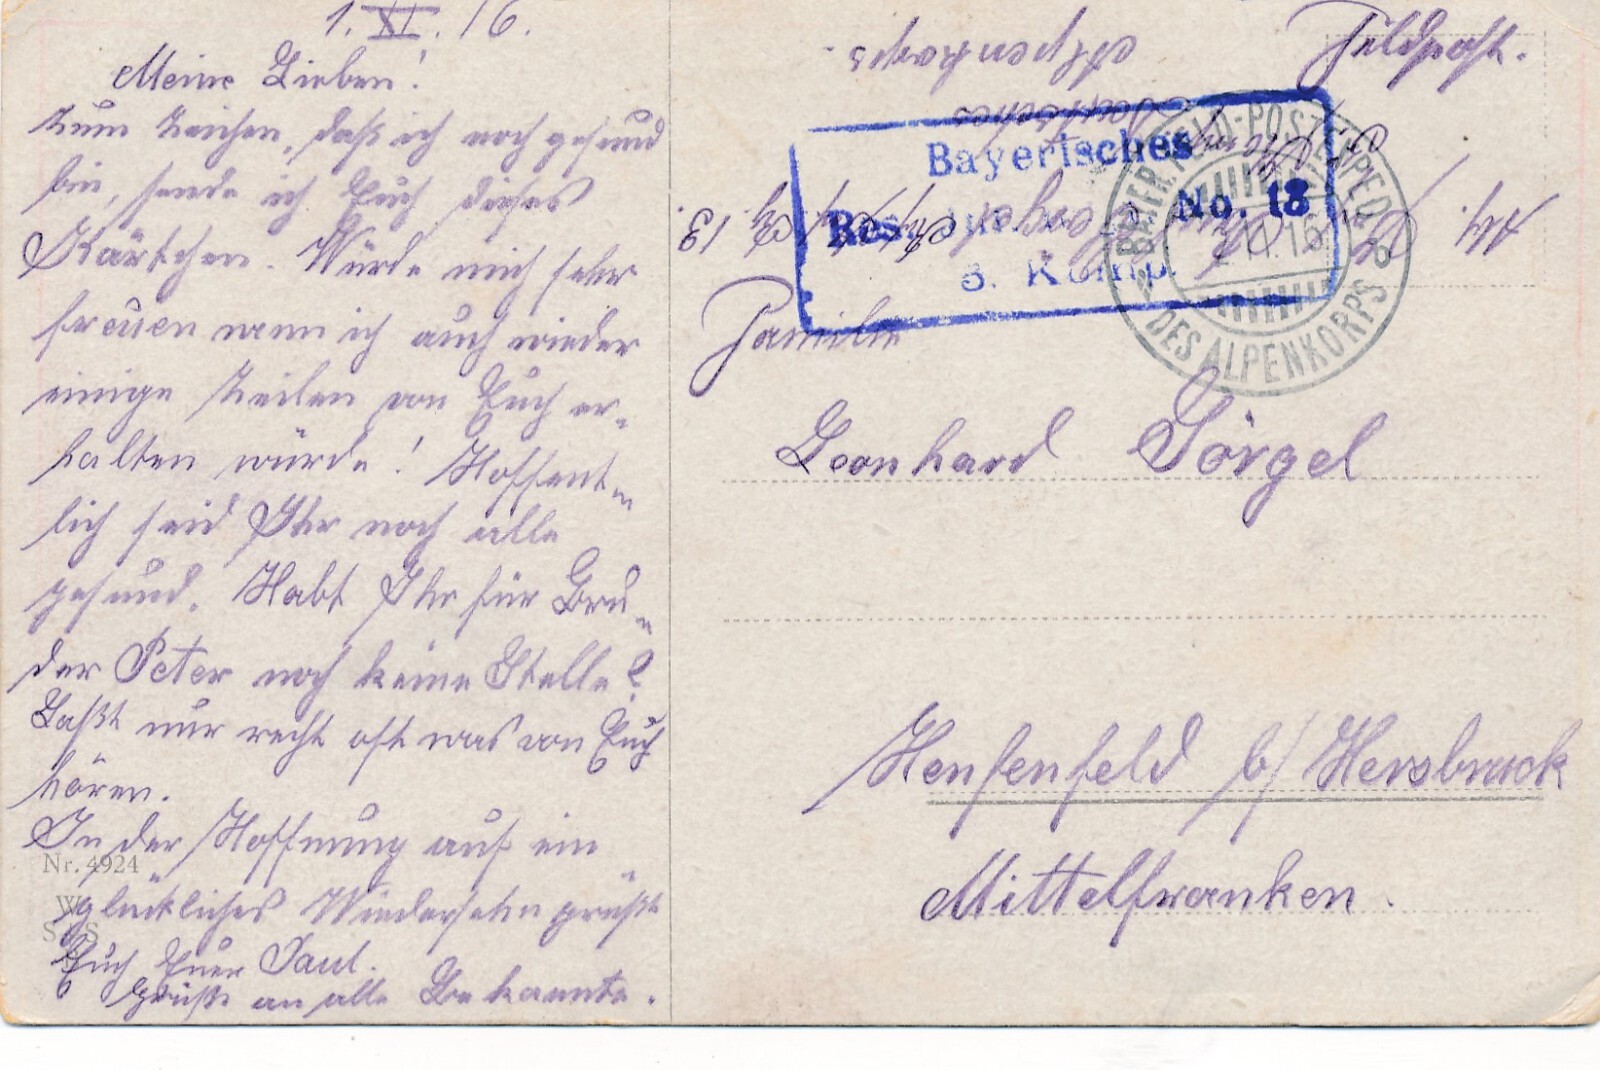 1.XI.16.
Meine Lieben!
Zum Zeichen, daß ich noch gesund
bin, sende ich Euch dieses
Kärtchen. Würde mich sehr
freuen wenn ich auch wieder
einige Zeilen von Euch er-
halten würde! Hoffent-
lich seid Ihr noch alle
gesund. Habt Ihr für Bru-
der Peter noch keine Stelle?
Laßt nur recht oft was von Euch
hören.
In der Hoffnung auf ein
glückliches Wiedersehn grüßt
Euch Euer Paul.
Grüße an alle Bekannte.
Nr. 4924
W
S S
Feldpost.
Alpenkorps
Deutsches
Bayerisches
Res. No. 18
3. Komp.
BAYER. FELD-POSTEXPED.
DES ALPENKORPS
Familie
Leonhard Sörgel
Henfenfeld b/Hersbruck
Mittelfranken.